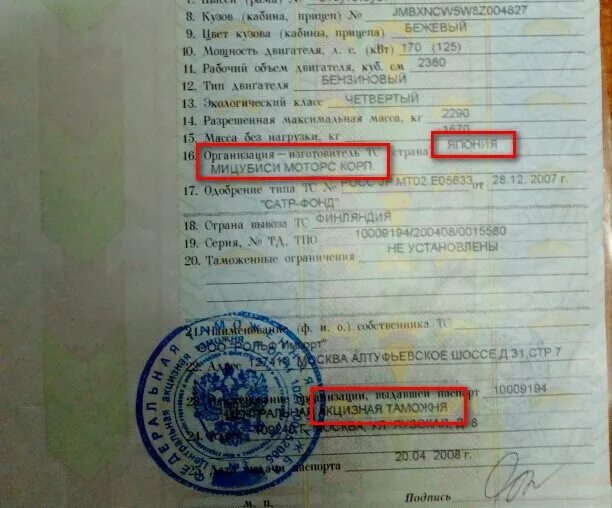 8. Кузов (кабина, прицеп) № JMBXNCW5W8Z004827
9. Цвет кузова (кабины, прицепа) БЕЖЕВЫЙ
10. Мощность двигателя, л. с. (кВт) 170 (125)
11. Рабочий объем двигателя, куб. см 2360
12. Тип двигателя БЕНЗИНОВЫЙ
13. Экологический класс ЧЕТВЕРТЫЙ
14. Разрешенная максимальная масса, кг 2290
15. Масса без нагрузки, кг 1670
16. Организация — изготовитель ТС (страна) ЯПОНИЯ
МИЦУБИСИ МОТОРС КОРП
17. Одобрение типа ТС № РОСС JP.МТ02.Е05633 от 28.12.2007 г.
"САТР-ФОНД"
18. Страна вывоза ТС ФИНЛЯНДИЯ
19. Серия, № ТД, ТПО 10009194/200408/0015580
20. Таможенные ограничения НЕ УСТАНОВЛЕНЫ
21. Наименование (ф. и. о.) собственника ТС
ООО "РОЛЬФ Импорт"
22. Адрес 127410, МОСКВА АЛТУФЬЕВСКОЕ ШОССЕ Д.31,СТР.7
23. Наименование организации, выдавшей паспорт 10009194
ЦЕНТРАЛЬНАЯ АКЦИЗНАЯ ТАМОЖНЯ
24. Г. МОСКВА, УЛ. ЯУЗСКАЯ, Д. 8
25. Дата выдачи паспорта 20.04 2008 г.
М. П. Подпись
ФЕДЕРАЛЬНАЯ ТАМОЖЕННАЯ
Центральная акцизная таможня